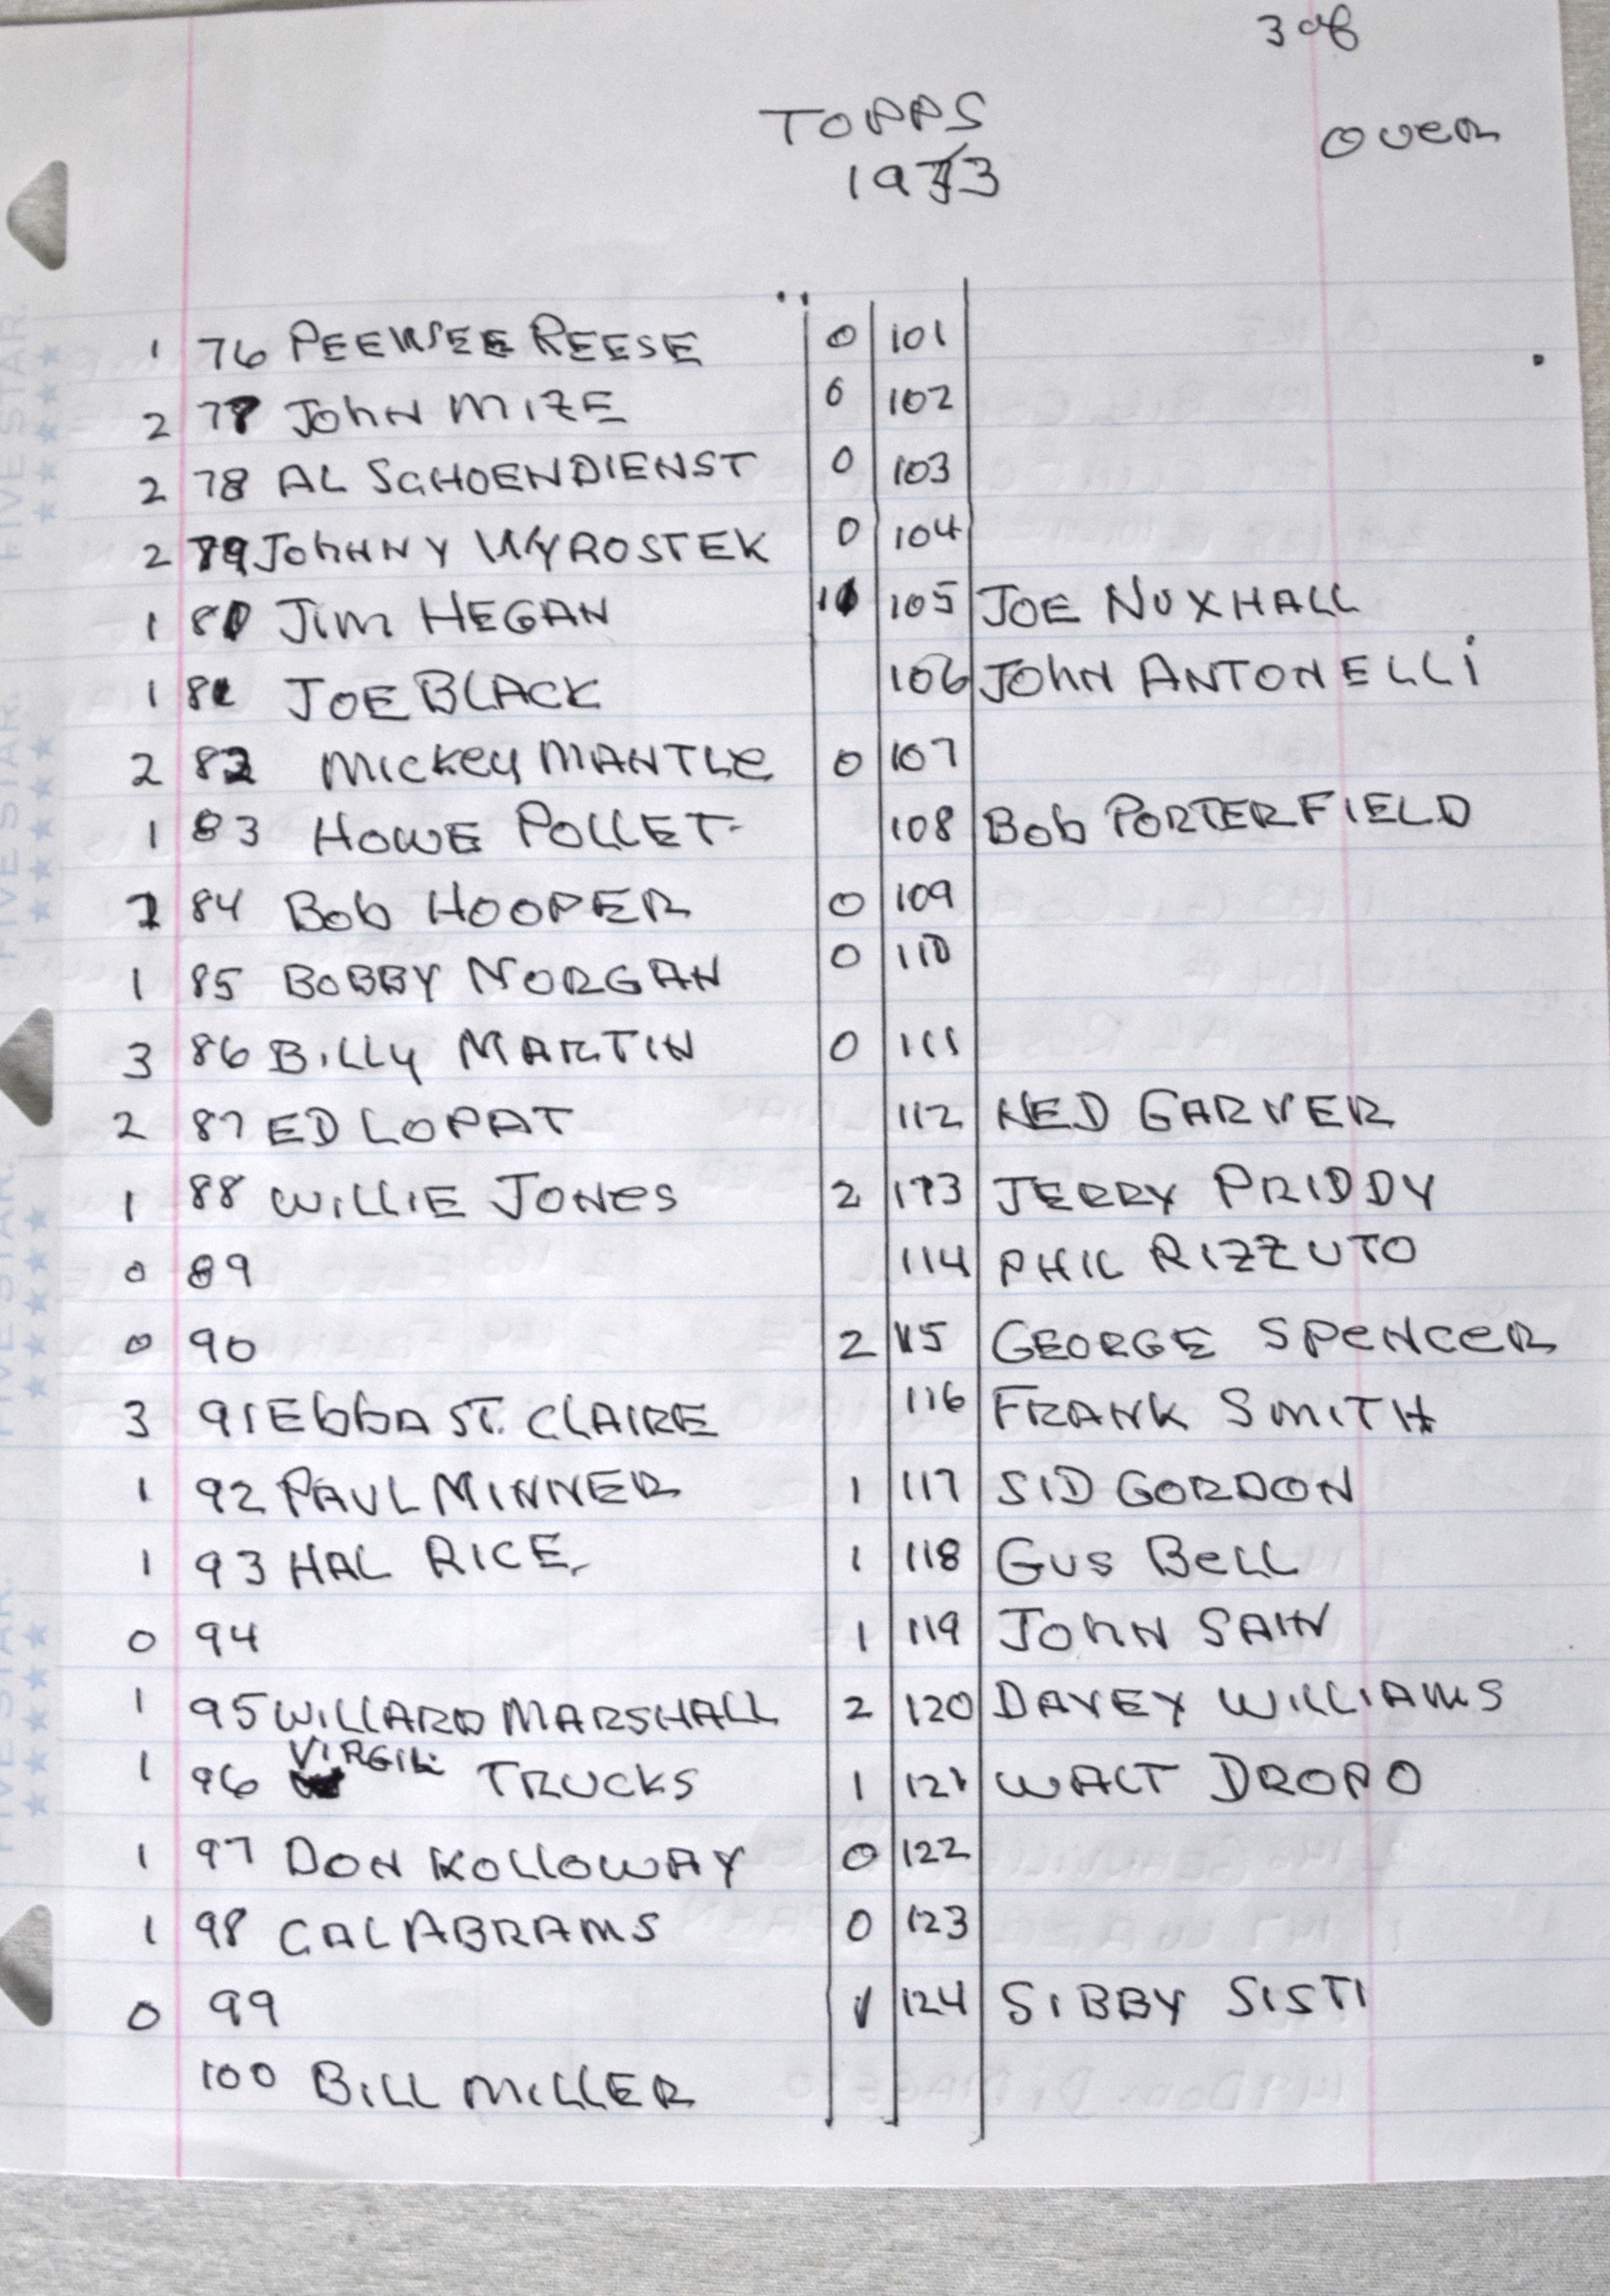 3 of
TOPPS
OVER
1 76 PEEWEE REESE
2 77 JOHN MIZE
2 78 AL SCHOENDIENST
2 79 JOHNNY WYROSTEK
1 80 JIM HEGAN
1 81 JOE BLACK
2 82 MICKEY MANTLE
1 83 HOWE POLLET
84 BOB HOOPER
1 85 BOBBY MORGAN
3 86 BILLY MARTIN
2 87 ED LOPAT
1 88 WILLIE JONES
0 89
0 90
3 91 EBBA ST. CLAIRE
1 92 PAUL MINNER
1 93 HAL RICE
0 94
1 95 WILLARD MARSHALL
1 96 VIRGIL TRUCKS
1 97 DON KOLLOWAY
1 98 CAL ABRAMS
0 99
100 BILL MILLER
0 101
0 102
0 103
0 104
105 JOE NUXHALL
106 JOHN ANTONELLI
0 107
108 BOB PORTERFIELD
0 109
0 110
0 111
112 NED GARVER
2 113 JERRY PRIDDY
114 PHIL RIZZUTO
2 115 GEORGE SPENCER
116 FRANK SMITH
1 117 SID GORDON
1 118 GUS BELL
1 119 JOHN SAIN
2 120 DAVEY WILLIAMS
1 121 WALT DROPO
0 122
0 123
1 124 SIBBY SISTI
FIVE STAR.
FIVE STAR.
FIVE STAR.
FIVE STAR.